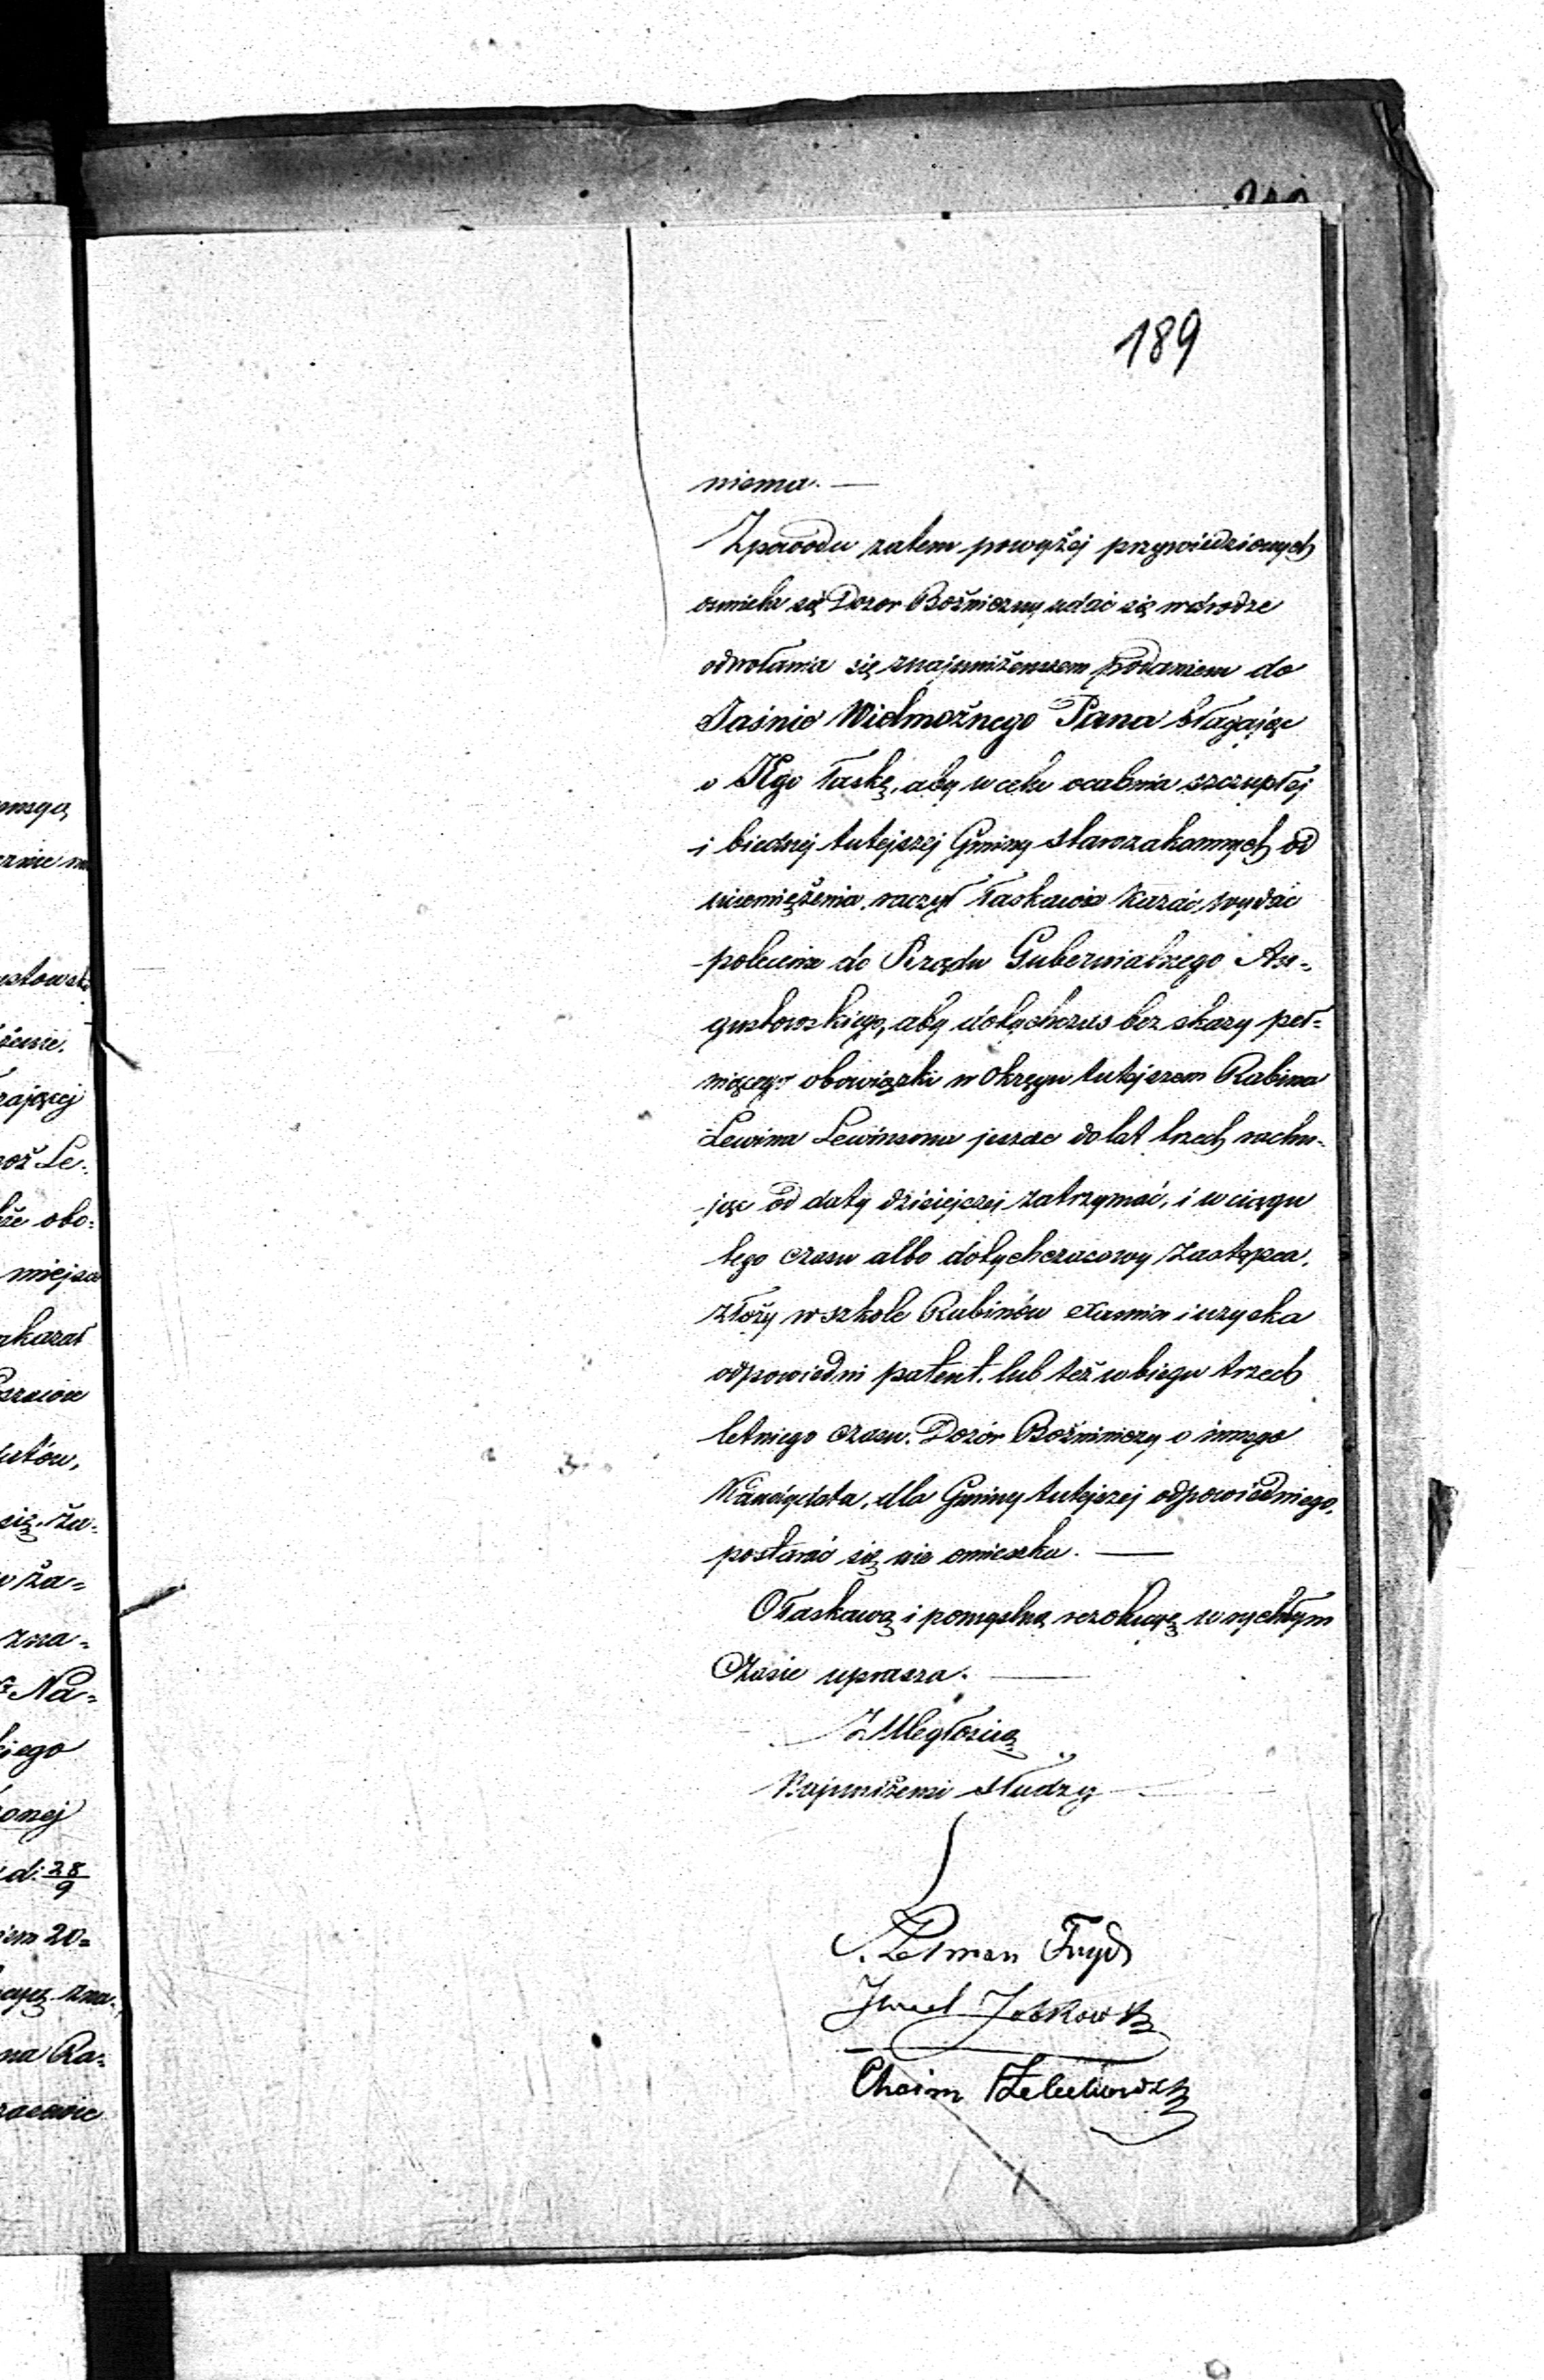 189
niema. —
Z powodu zatem powyżej przywiedzionych
ośmiela się Dozor Bożniczny udać się w drodze
odwołania się z najuniżenszem podaniem do
Jaśnie Wielmożnego Pana błagając
o Jego łaskę, aby w celu ocalenia szczupłej
i biednej tutejszej Gminy starozakonnych od
uciemiężenia raczył łaskawie kazać wydać
polecenie do Rządu Gubernialnego Au-
gustowskiego, aby dotychczas bez skazy peł-
niącego obowiązki w Okręgu tutejszem Rabina
Lewina Lewinsona jeszcze do lat trzech rachu-
jąc od daty dzisiejszej zatrzymać, i w ciągu
tego czasu albo dotychczasowy Zastępca,
złoży w szkole Rabinów examin i uzyska
odpowiedni patent, lub też w biegu trzech
letniego czasu. Dozór Bożniniczy o innego
Kandydata, dla Gminy tutejszej odpowiedniego,
postarać się nie omieszka. —
O łaskawą i pomyślną rezolucyę w rychłym
Czasie uprasza. —
Z Uległością
Najuniżeńsi słudzy
Fryd
Chaim
emsgo
miejsca
akazał
utów,
się. Za-
w Za-
zna-
Na-
kiego
onej
d. 28/9
iem 20=
na Ra-